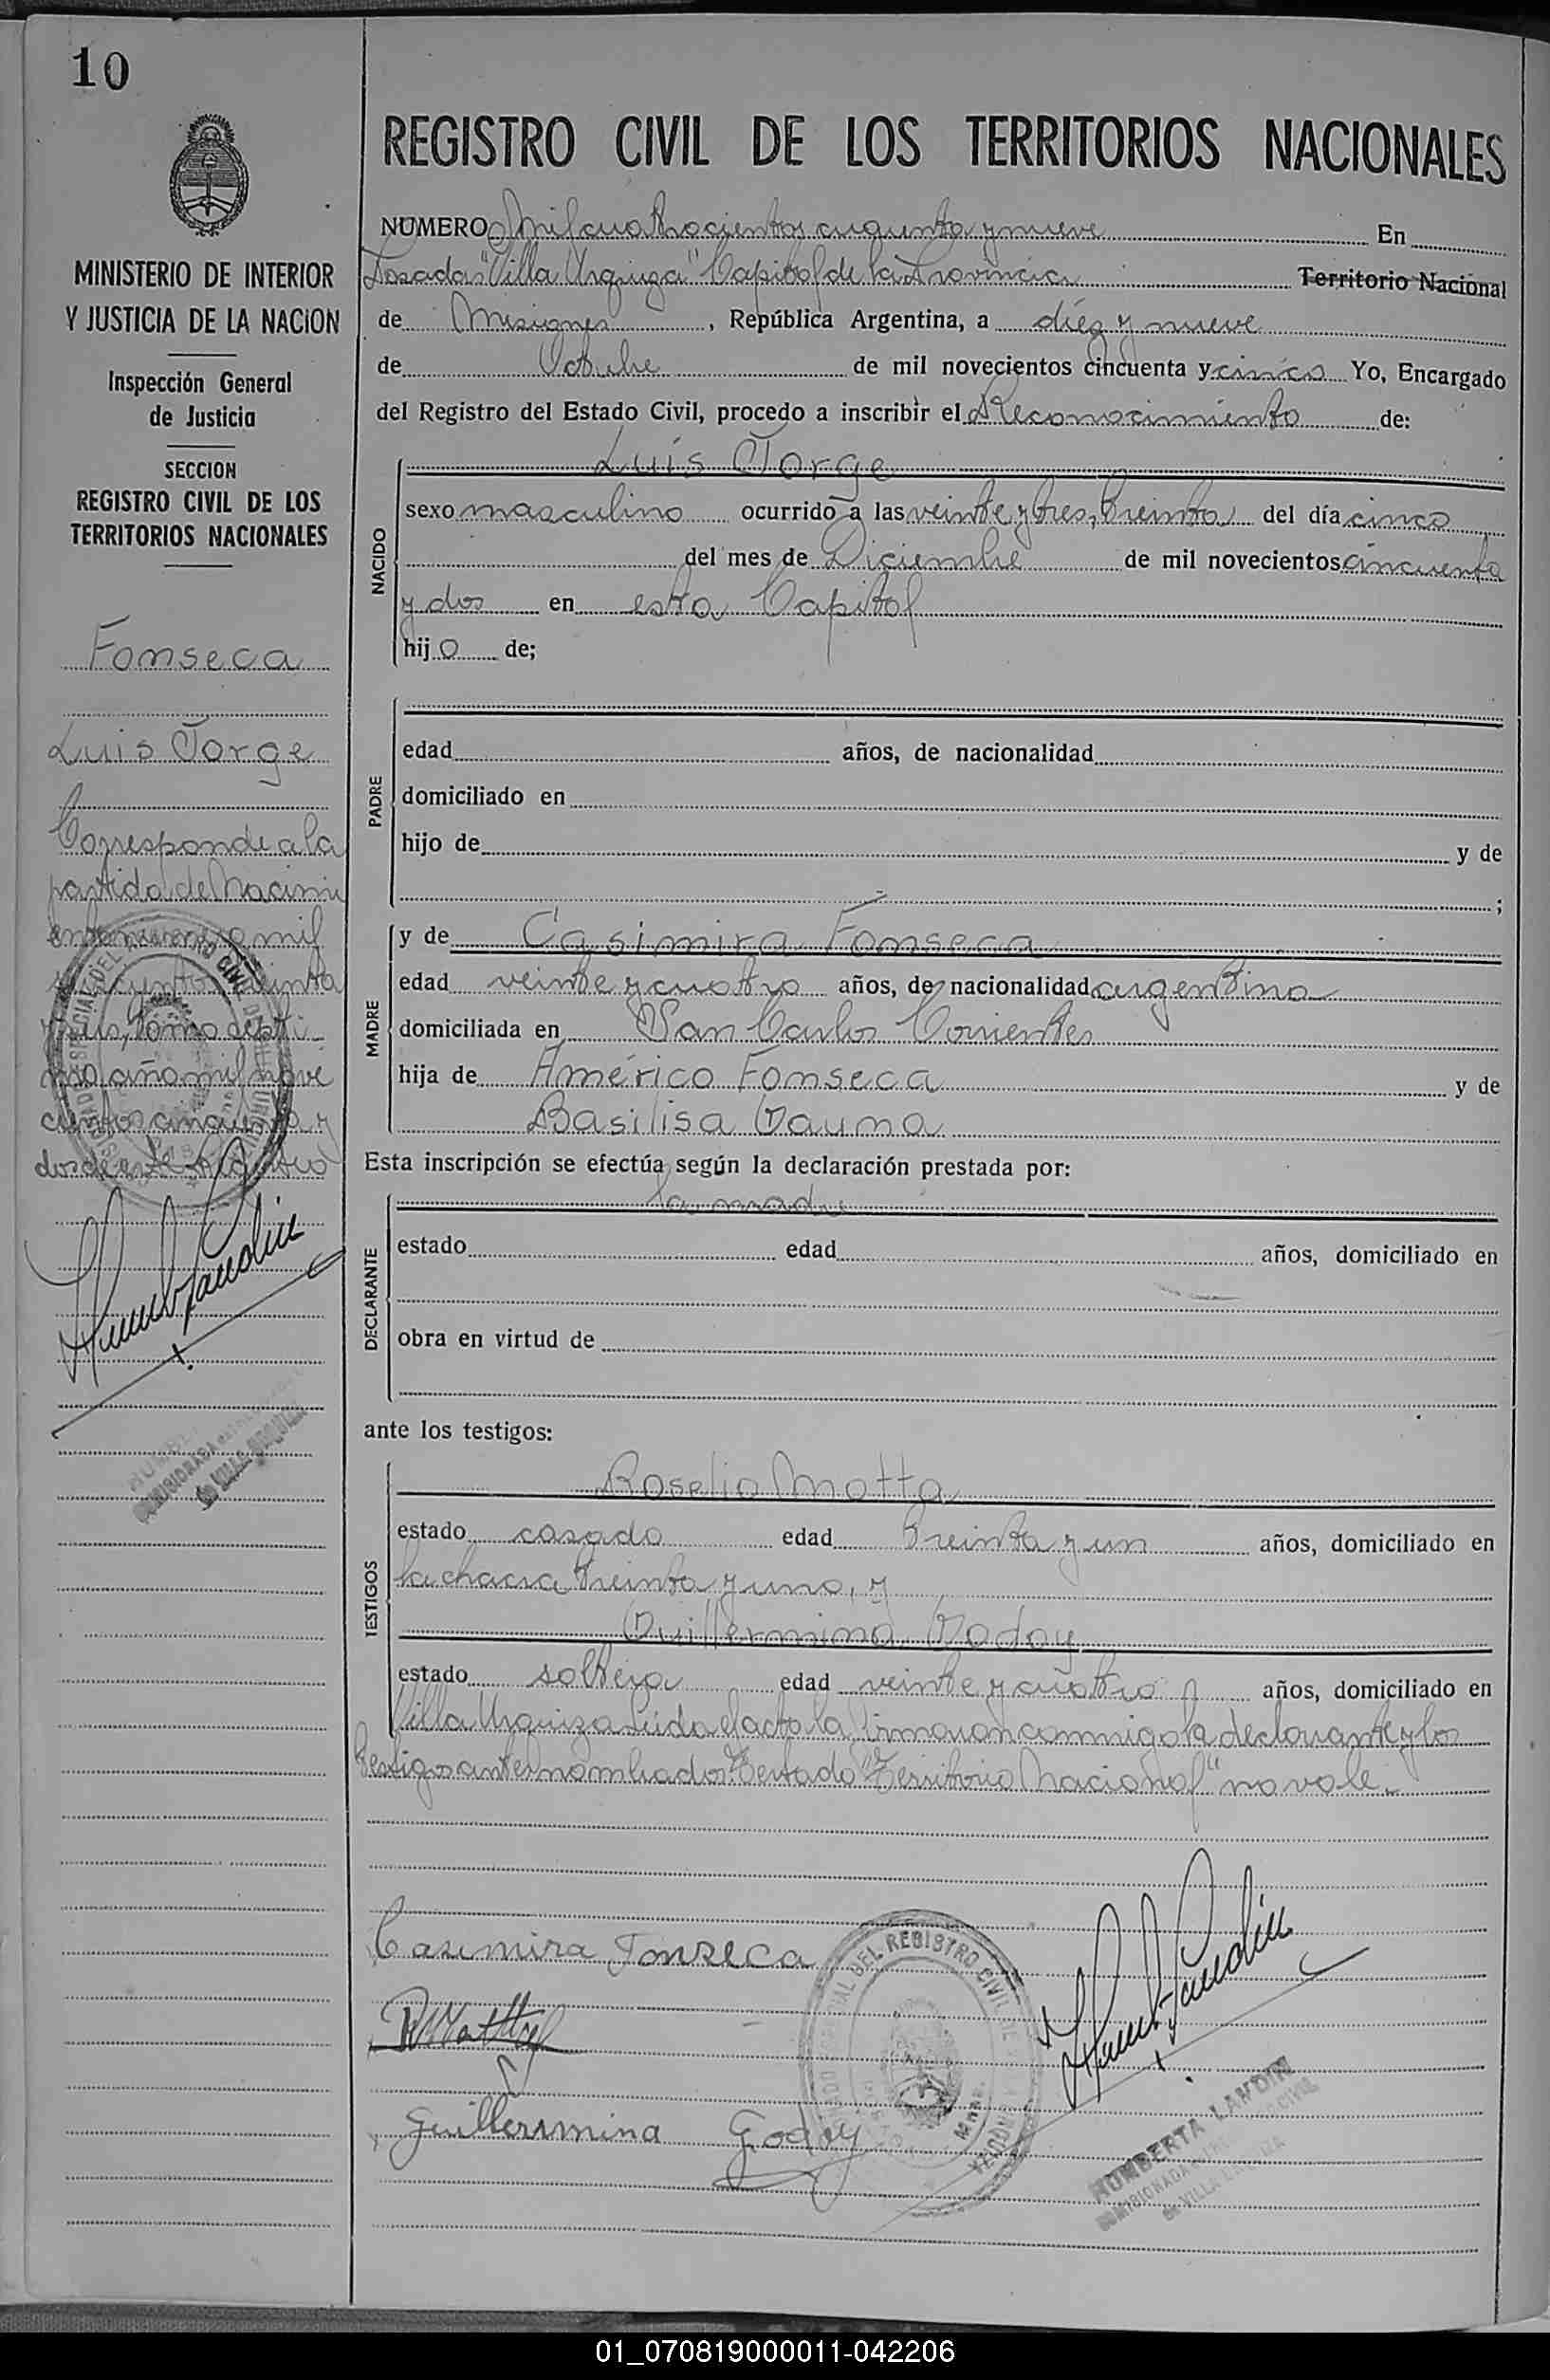 10
MINISTERIO DE INTERIOR
Y JUSTICIA DE LA NACION
Inspección General
de Justicia
SECCION
REGISTRO CIVIL DE LOS
TERRITORIOS NACIONALES
Fonseca
Luis Jorge
Corresponde a la
partida de Nacimi
ento número mil
y seis, tomo septi
mo año mil nove
cientos cincuenta y
dos de este Registro
REGISTRO CIVIL DE LOS TERRITORIOS NACIONALES
NUMERO Mil cuatrocientos cuarenta y nueve En
Posadas "Villa Urquiza" Capital de la Provincia Territorio Nacional
de Misiones, República Argentina, a diez y nueve
de Octubre de mil novecientos cincuenta y cinco Yo, Encargado
del Registro del Estado Civil, procedo a inscribir el Reconocimiento de:
Luis Jorge
NACIDO
sexo masculino ocurrido a las veinte y tres, treinta del día cinco
del mes de Diciembre de mil novecientos cincuenta
y dos en esta Capital
hijo de;
PADRE
edad años, de nacionalidad
domiciliado en
hijo de y de
;
MADRE
y de Casimira Fonseca
edad veinte y cuatro años, de nacionalidad argentina
domiciliada en San Carlos Corrientes
hija de Américo Fonseca y de
Basilisa Gauna
Esta inscripción se efectúa según la declaración prestada por:
la madre
DECLARANTE
estado edad años, domiciliado en
obra en virtud de
ante los testigos:
TESTIGOS
Roselio Motta
estado casado edad treinta y un años, domiciliado en
la chacra treinta y uno, y
Guillermina Godoy
estado soltera edad veinte y cuatro años, domiciliado en
Villa Urquiza Leida el acta la firmaron conmigo la declarante y los
testigos antes nombrados. Testado "Territorio Nacional" no vale.
Casimira Fonseca
RMotta
Guillermina Godoy
DEL REGISTRO CIVIL
HUMBERTA LANDIN
COMISIONADA
DE VILLA URQUIZA
01_070819000011-042206